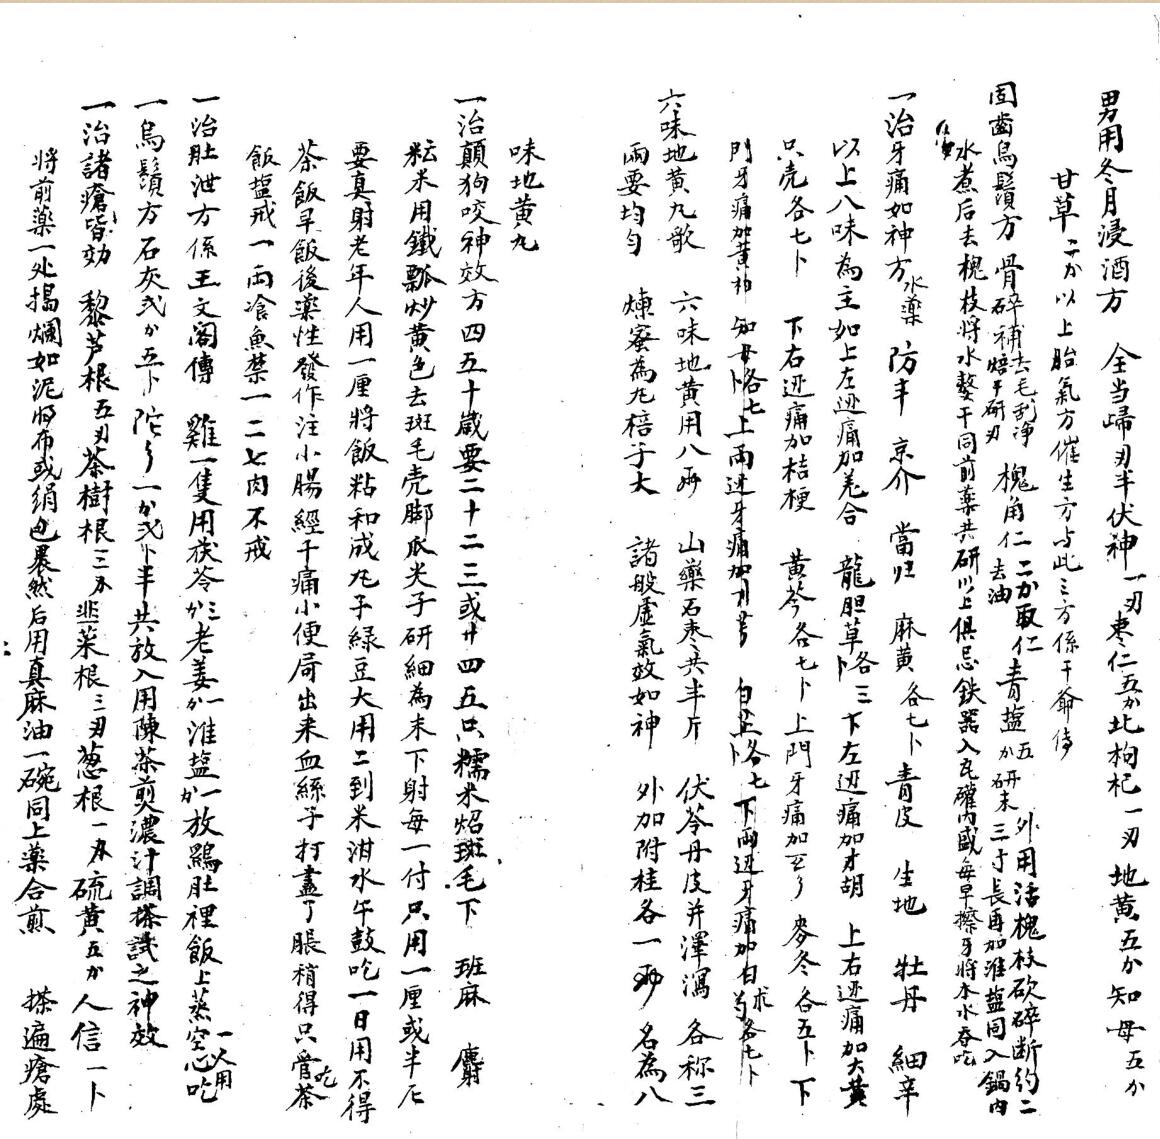 男用冬月浸酒方 全当歸刃半伏神一刃枣仁五分北枸杞一刃地黄五分知母五分
甘草二分以上胎氣方催生方与此三方係干爺传
固齒烏鬚方 骨碎補去毛刮净焙干研刃 槐角仁二分取仁去油 青塩五分研末 外用活槐枝砍碎断约二三寸長再加淮塩同入鍋内
水煮后去槐枝将水熬干同前薬共研以上俱忌鉄器入瓦罐内盛每早擦牙将本水吞吃
一治牙痛如神方 水薬 防丰 京介 當归 麻黄各七卜 青皮 生地 牡丹 細辛
以上八味為主如上左边痛加羌合 龍胆草各三卜 下左边痛加才胡 上右边痛加大黄
只壳各七卜 下右边痛加桔梗 黄芩各七卜上門牙痛加 麥冬各五卜下
門牙痛加黄 知母各七卜上両边牙痛加 白芷各七卜下両边牙痛加白术 各七卜
六味地黄九歌 六味地黄用八両 山藥石枣共半斤 伏苓丹皮并澤瀉 各称三
両要均匀 煉蜜為九梧子大 諸般虚氣效如神 外加附桂各一両 名為八
味地黄九
一治顛狗咬神效方四五十歲要二十二三或廿四五只糯米炤斑毛下 班麻 麝
秐米用鐵瓢炒黄色去斑毛壳脚爪尖子研細為末下射每一付只用一厘或半厘
要真射老年人用一厘將飯粘和成九子緑豆大用二到米泔水午鼓吃一日用不得
茶飯早飯後薬性發作注小腸經干痛小便局出来血絲子打盡了脹稍得只管吃茶
飯塩戒一両冾魚禁一二七肉不戒
一治肚泄方係王文阁傳 雞一隻用茯苓三分老姜一分淮塩一分放鷄肚裡飯上蒸空心吃 一人用
一烏鬚方石灰弍分五卜陀了一分弍卜半共放入用陳茶煎濃汁調搽試之神效
一治諸瘡皆効 黎芦根五刃茶樹根三分韭菜根三刃葱根一分硫黄五分人信一卜
将前薬一处搗爛如泥将布或絹包裹然后用真麻油一碗同上薬合煎 搽遍瘡處